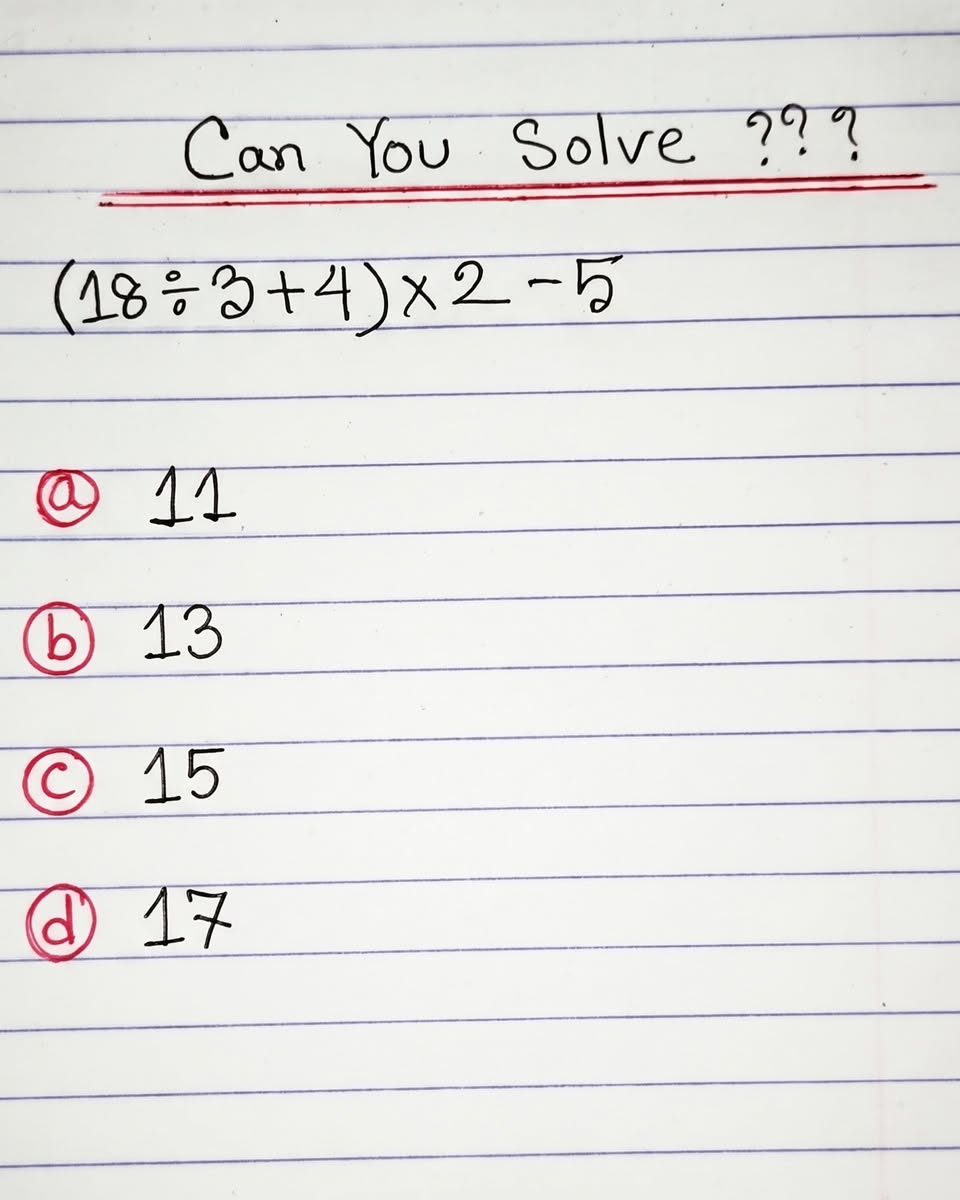 Can You Solve ???
(18÷3+4)×2-5
a 11
b 13
c 15
d 17